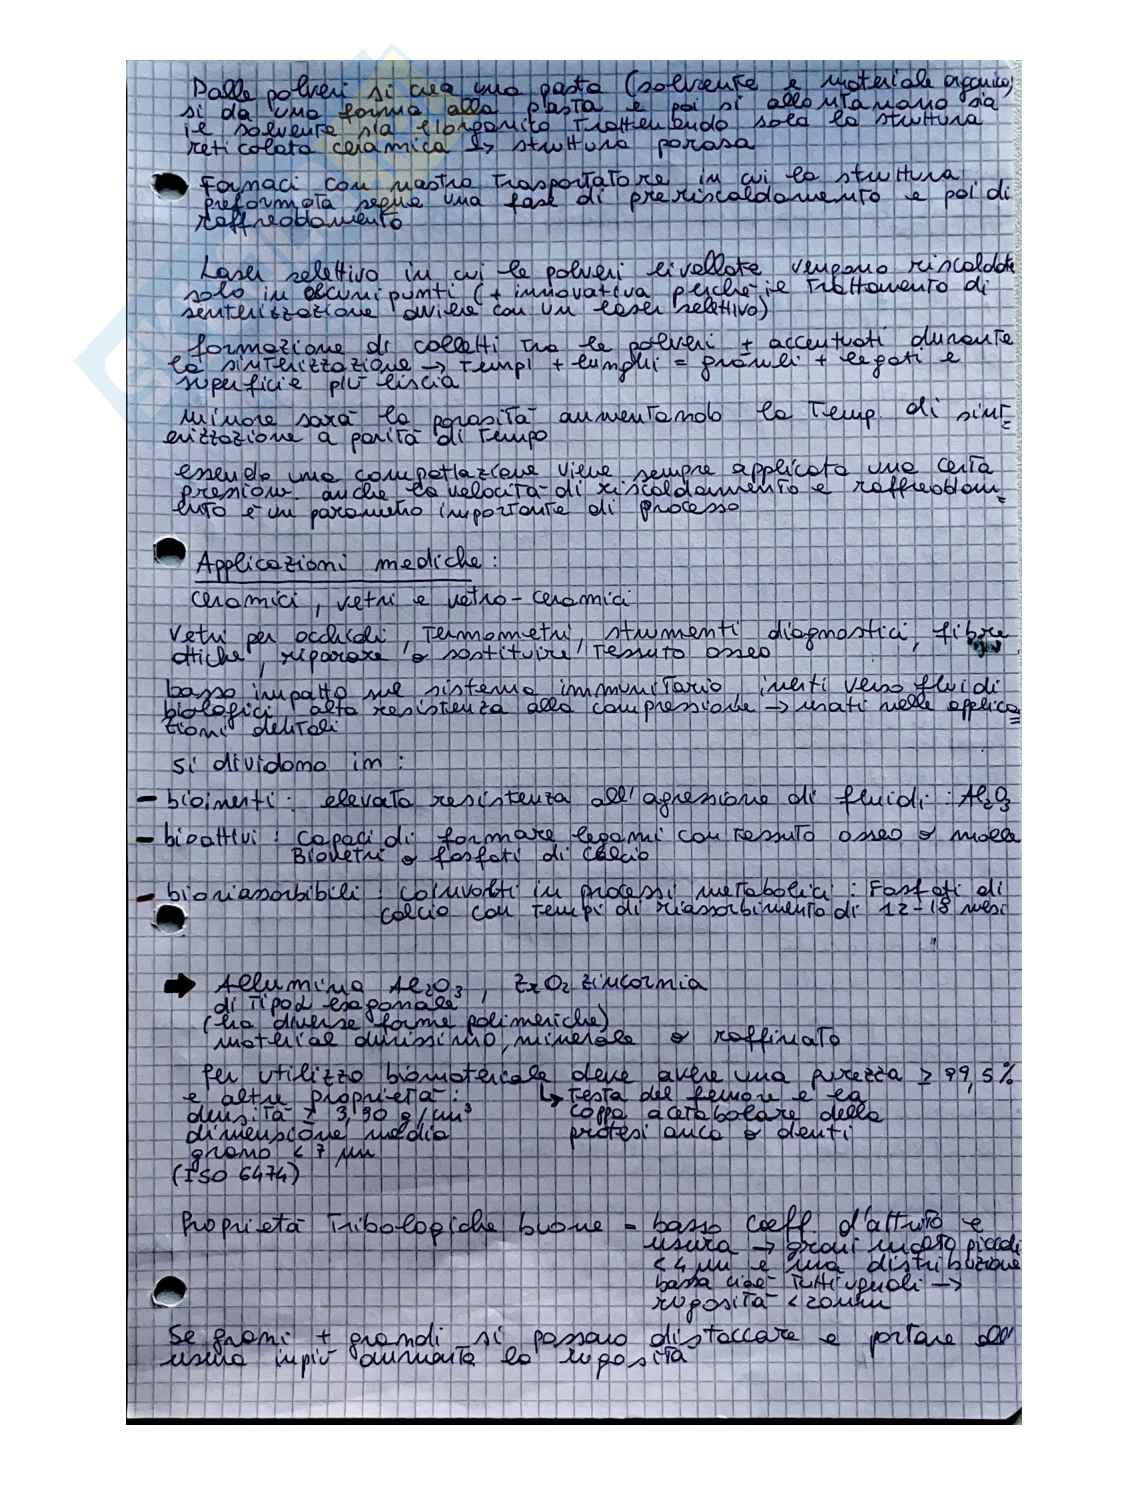 Dalle polveri si crea una pasta (solvente e materiale organico)
si da una forma alla pasta e poi si allontanano sia
il solvente sia l'organico trattenendo solo la struttura
reticolata ceramica ↳ struttura porosa
Fornaci con nastro trasportatore in cui la struttura
preformata segue una fase di preriscaldamento e poi di
raffreddamento
Laser selettivo in cui le polveri livellate vengono riscaldate
solo in alcuni punti (+ innovativa perché il trattamento di
sinterizzazione avviene con un laser selettivo)
formazione di colletti tra le polveri + accentuati durante
la sinterizzazione → tempi + lunghi = granuli + legati e
superficie più liscia
minore sarà la porosità aumentando la temp. di sint=
erizzazione a parità di tempo
essendo una compattazione viene sempre applicata una certa
pressione anche la velocità di riscaldamento e raffreddam=
ento è un parametro importante di processo
Applicazioni mediche:
ceramici, vetri e vetro-ceramici
Vetri per occhiali, termometri, strumenti diagnostici, fibre
ottiche, riparare o sostituire tessuto osseo
basso impatto sul sistema immunitario, inerti verso fluidi
biologici, alta resistenza alla compressione → usati nelle applica=
zioni dentali
si dividono in:
- bioinerti: elevata resistenza all'agressione di fluidi: Al₂O₃
- bioattivi: capaci di formare legami con tessuto osseo o molle
Biovetri o fosfati di calcio
- bioriassorbibili: coinvolti in processi metabolici: Fosfati di
calcio con tempi di riassorbimento di 12-18 mesi
→ Allumina Al₂O₃, ZrO₂ zirconia
di tipo α esagonale
(ha diverse forme polimeriche)
material durissimo, minerale o raffinato
Per utilizzo biomateriale deve avere una purezza ≥ 99,5%
e altre proprietà: ↳ testa del femore e la
densità ≥ 3,90 g/cm³ coppa acetabolare della
dimensione media protesi anca o denti
grano < 7 μm
(ISO 6474)
Proprietà tribologiche buone = basso coeff. d'attrito e
usura → grani molto piccoli
< 4 μm e una distribuzione
bassa cioè tutti uguali →
rugosità < 20 nm
Se grani + grandi si possono distaccare e portare all'
usura in più aumenta la rugosità